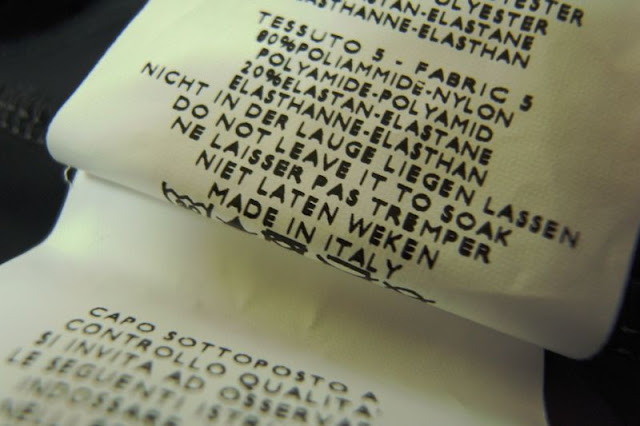 POLYESTER
ELASTAN-ELASTANE
ELASTHANNE-ELASTHAN
TESSUTO 5 - FABRIC 5
80%POLIAMMIDE-NYLON
POLYAMIDE-POLYAMID
20%ELASTAN-ELASTANE
ELASTHANNE-ELASTHAN
NICHT IN DER LAUGE LIEGEN LASSEN
DO NOT LEAVE IT TO SOAK
NE LAISSER PAS TREMPER
NIET LATEN WEKEN
MADE IN ITALY
CAPO SOTTOPOSTO A
CONTROLLO QUALITA'
SI INVITA AD OSSERVARE
LE SEGUENTI
INDOSSARE